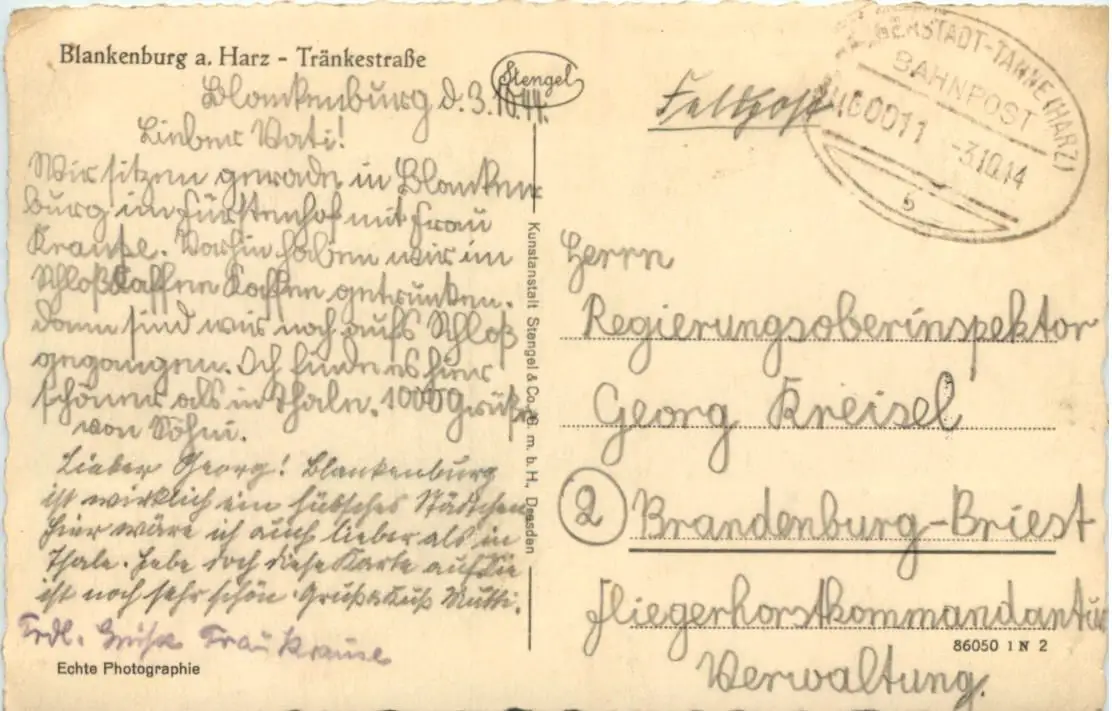 Blankenburg a. Harz - Tränkestraße
Stengel
Blankenburg d. 3.10.44.
Lieber Vati!
Wir sitzen gerade in Blanken
burg im Fürstenhof mit Frau
Krause. Vorhin haben wir im
Schloßkaffee Kaffee getrunken.
dann sind wir noch aufs Schloß
gegangen. Ich finde es hier
schöner als in Thale. 1000 Grüße
von Söhni.
Lieber Georg! Blankenburg
ist wirklich ein hübsches Städtchen
hier wäre ich auch lieber als in
Thale. Hebe doch diese Karte auf. Sie
ist noch sehr schön. Gruß & Kuß Mutti.
Frdl. Grüße Frau Krause
Echte Photographie
Kunstanstalt Stengel & Co. G. m. b. H., Dresden
Feldpost
BERSTADT-TANNE (HARZ)
BAHNPOST
-3.10.44
Herrn
Regierungsoberinspektor
Georg Kreisel
2 Brandenburg-Briest
Fliegerhorstkommandantur
86050 1 N 2
Verwaltung.